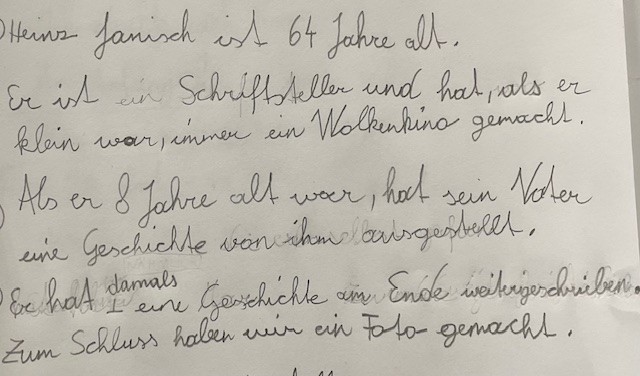 Heinz Janisch ist 64 Jahre alt.
Er ist ein Schriftsteller und hat, als er
klein war, immer ein Wolkenkino gemacht.
Als er 8 Jahre alt war, hat sein Vater
eine Geschichte von ihm ausgestellt.
Er hat damals 1 eine Geschichte am Ende weitergeschrieben.
Zum Schluss haben wir ein Foto gemacht.